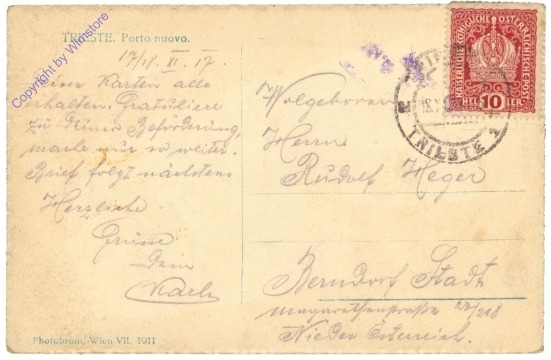 TRIESTE. Porto nuovo.
17/18. XI. 17.
Deine Karten alle
erhalten. Gratuliere
zu Deiner Beförderung,
mache nur so weiter.
Brief folgt nächstens
Herzliche
Grüsse
Dein
Karl
Photobrom, Wien VII. 1911
Wolgeboren
Herrn
Rudolf Heger
Berndorf Stadt
Margarethenstraße 27/218
Nieder Österreich.
KAISERLICHE KÖNIGLICHE ÖSTERREICHISCHE POST
HELLER 10 HELLER
TRIESTE 1
Copyright by Wimstore